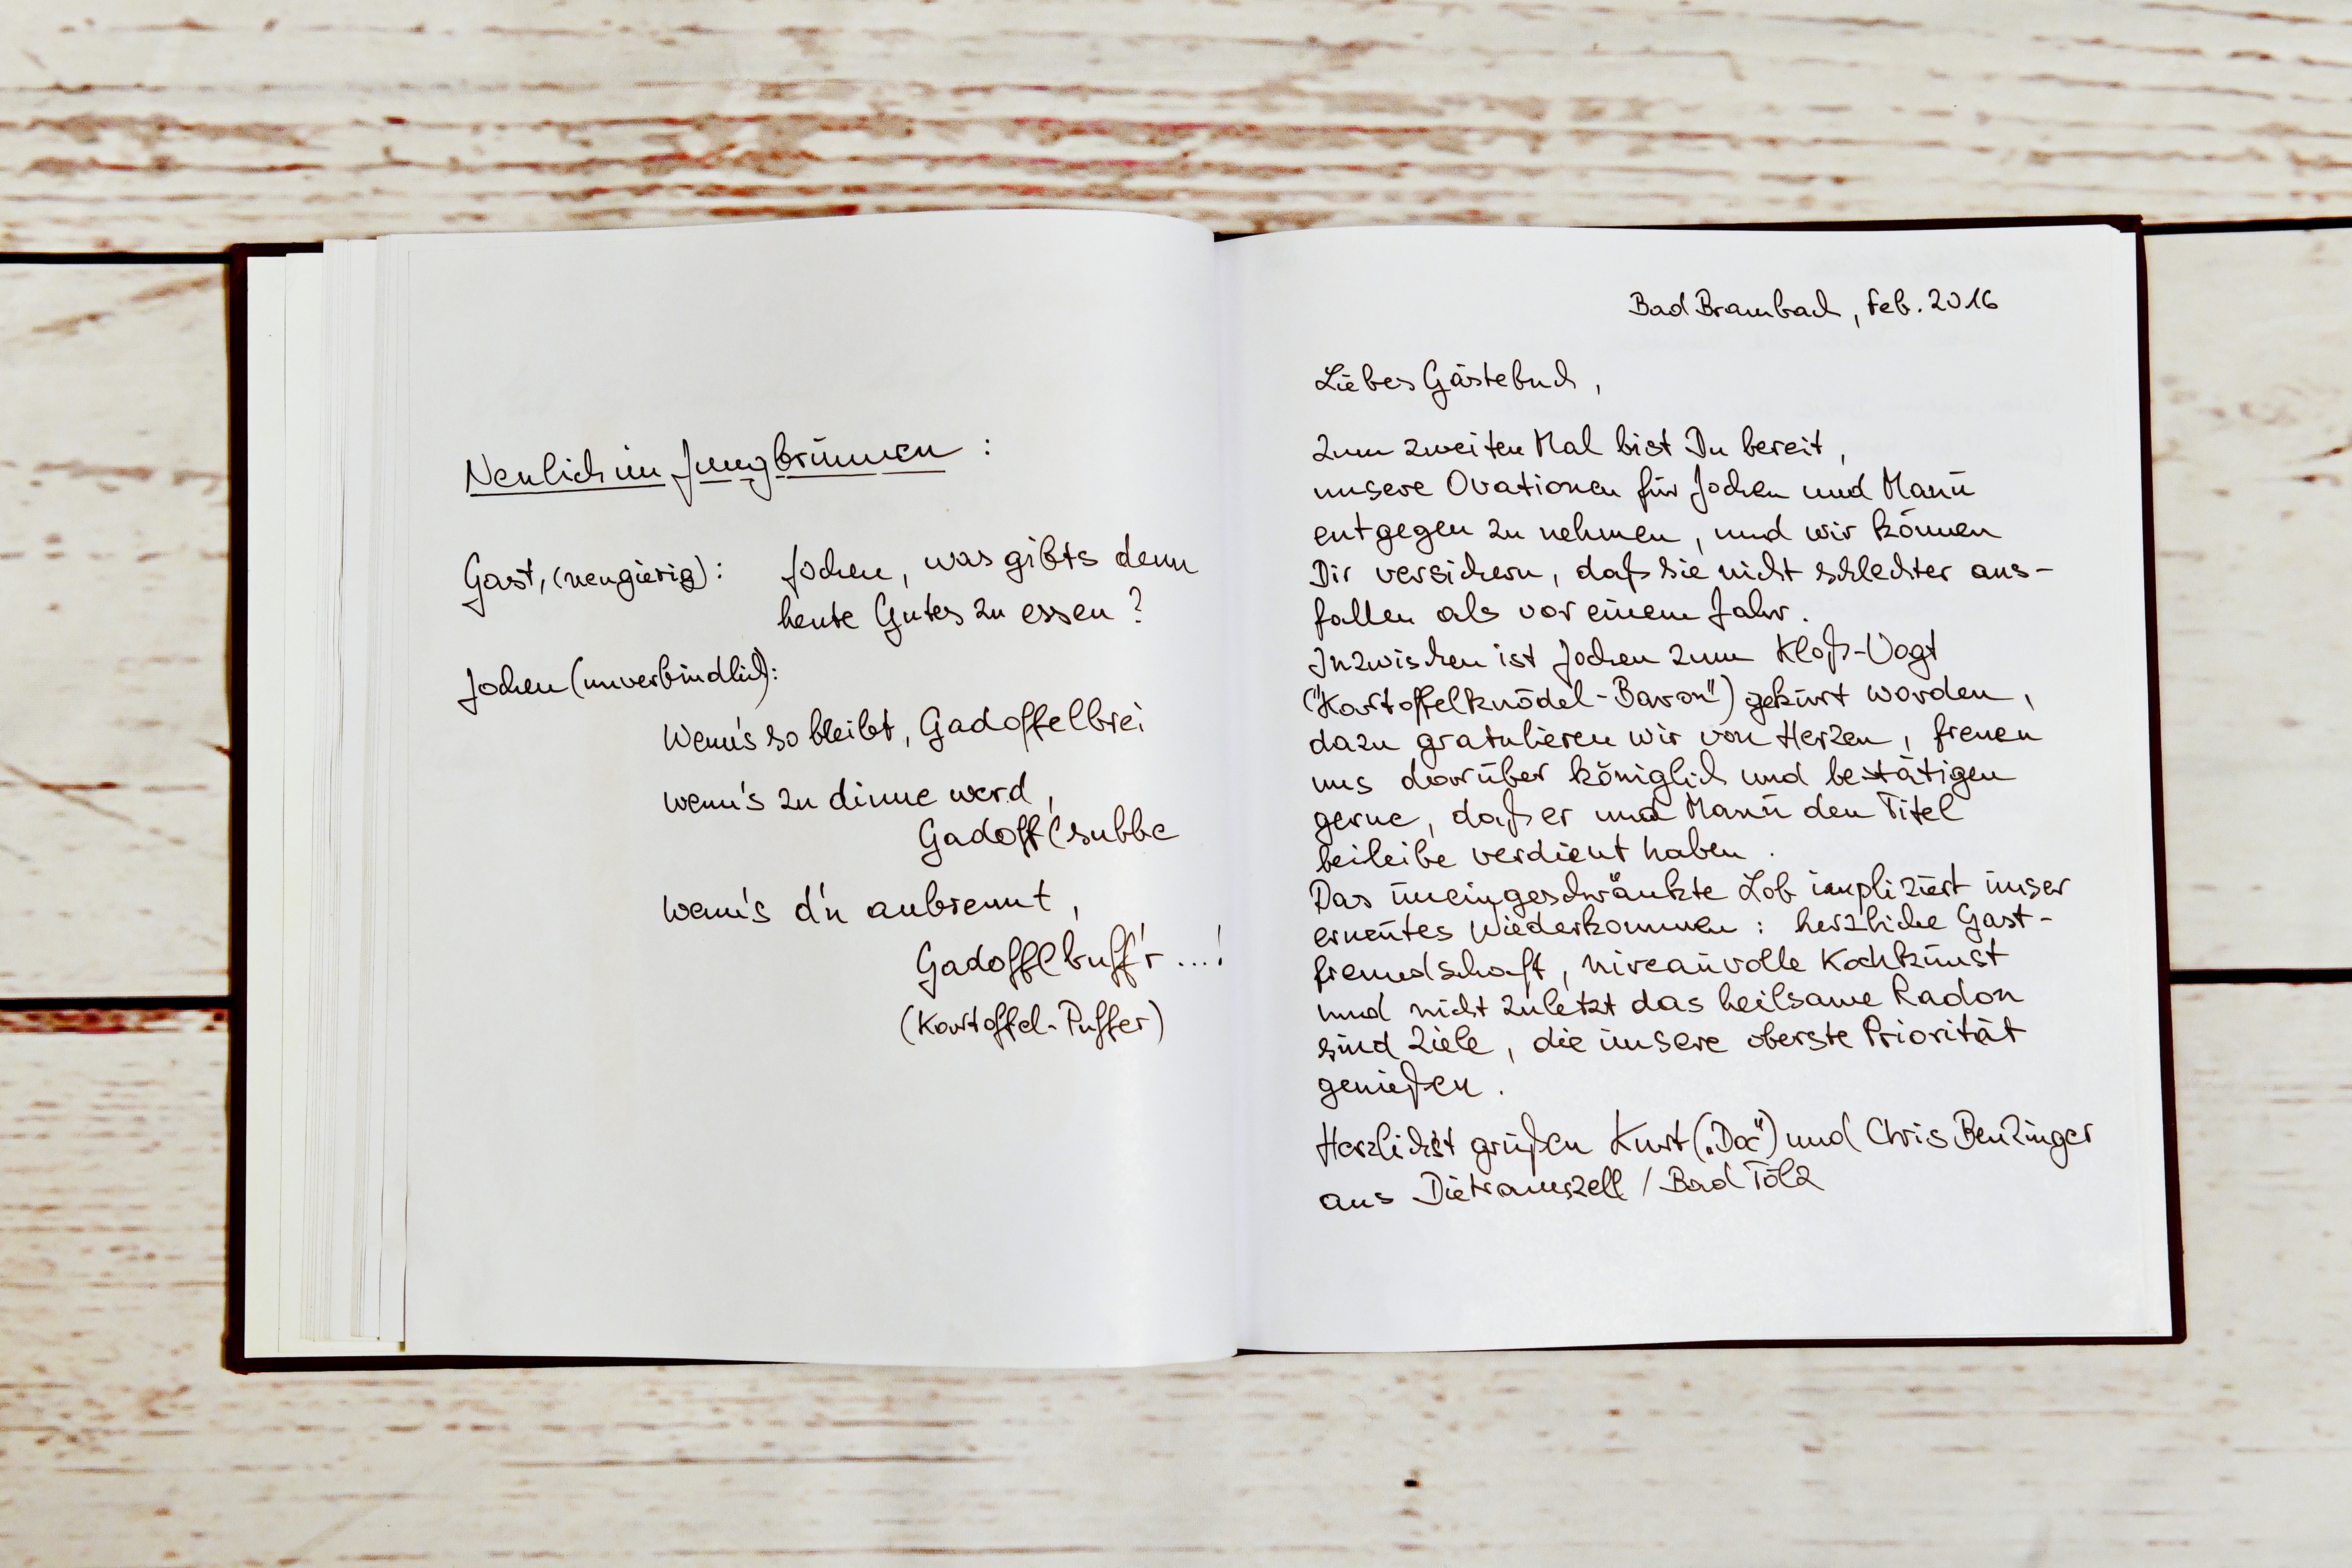 Neulich im Jungbrunnen :
Gast, (neugierig) : Jochen, was gibts denn
heute Gutes zu essen ?
Jochen (unverbindlich) :
Wenn's so bleibt, Gadoffelbrei
wenn's zu dinne werd ,
Gadofflsubbe
wenn's d'n anbrennt ,
Gadofflbuff'r ... !
(Kartoffel-Puffer)
Bad Brambach, Feb. 2016
Liebes Gästebuch ,
zum zweiten Mal bist Du bereit ,
unsere Ovationen für Jochen und Manu
entgegen zu nehmen , und wir können
Dir versichern, daß sie nicht schlechter aus-
fallen als vor einem Jahr .
Inzwischen ist Jochen zum Kloß-Vogt
("Kartoffelknödel-Baron") gekürt worden ,
dazu gratulieren wir von Herzen , freuen
uns darüber königlich und bestätigen
gerne , daß er und Manu den Titel
beileibe verdient haben .
Das uneingeschränkte Lob impliziert unser
erneutes Wiederkommen : herzliche Gast-
freundschaft , niveauvolle Kochkunst
und nicht zuletzt das heilsame Radon
sind Ziele , die unsere oberste Priorität
genießen .
Herzlichst grüßen Kurt („Doc") und Chris Benzinger
aus Dietramszell / Bad Tölz